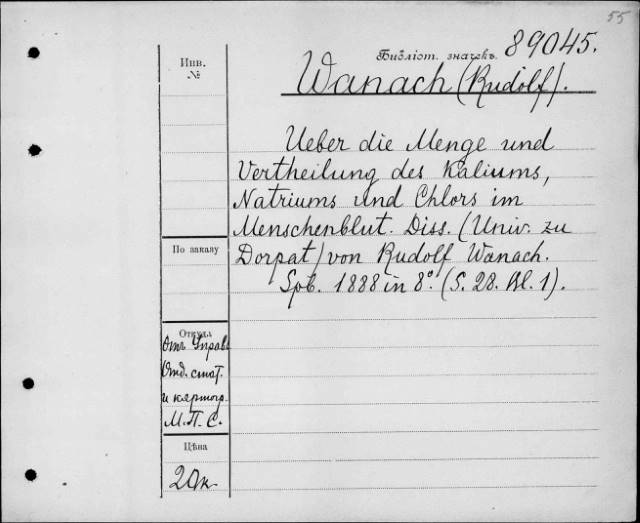 55
Инв.
№
Библіот. значекъ. 89045.
Wanach (Rudolf).
Ueber die Menge und
Vertheilung des Kaliums,
Natriums und Chlors im
Menschenblut. Diss. (Univ. zu
Dorpat) von Rudolf Wanach.
Spb. 1888 in 8°. (S. 28. Bl. 1).
По заказу
Откуда
Отъ Управ.
Отд. стат.
и картогр.
М. П. С.
Цѣна
20к